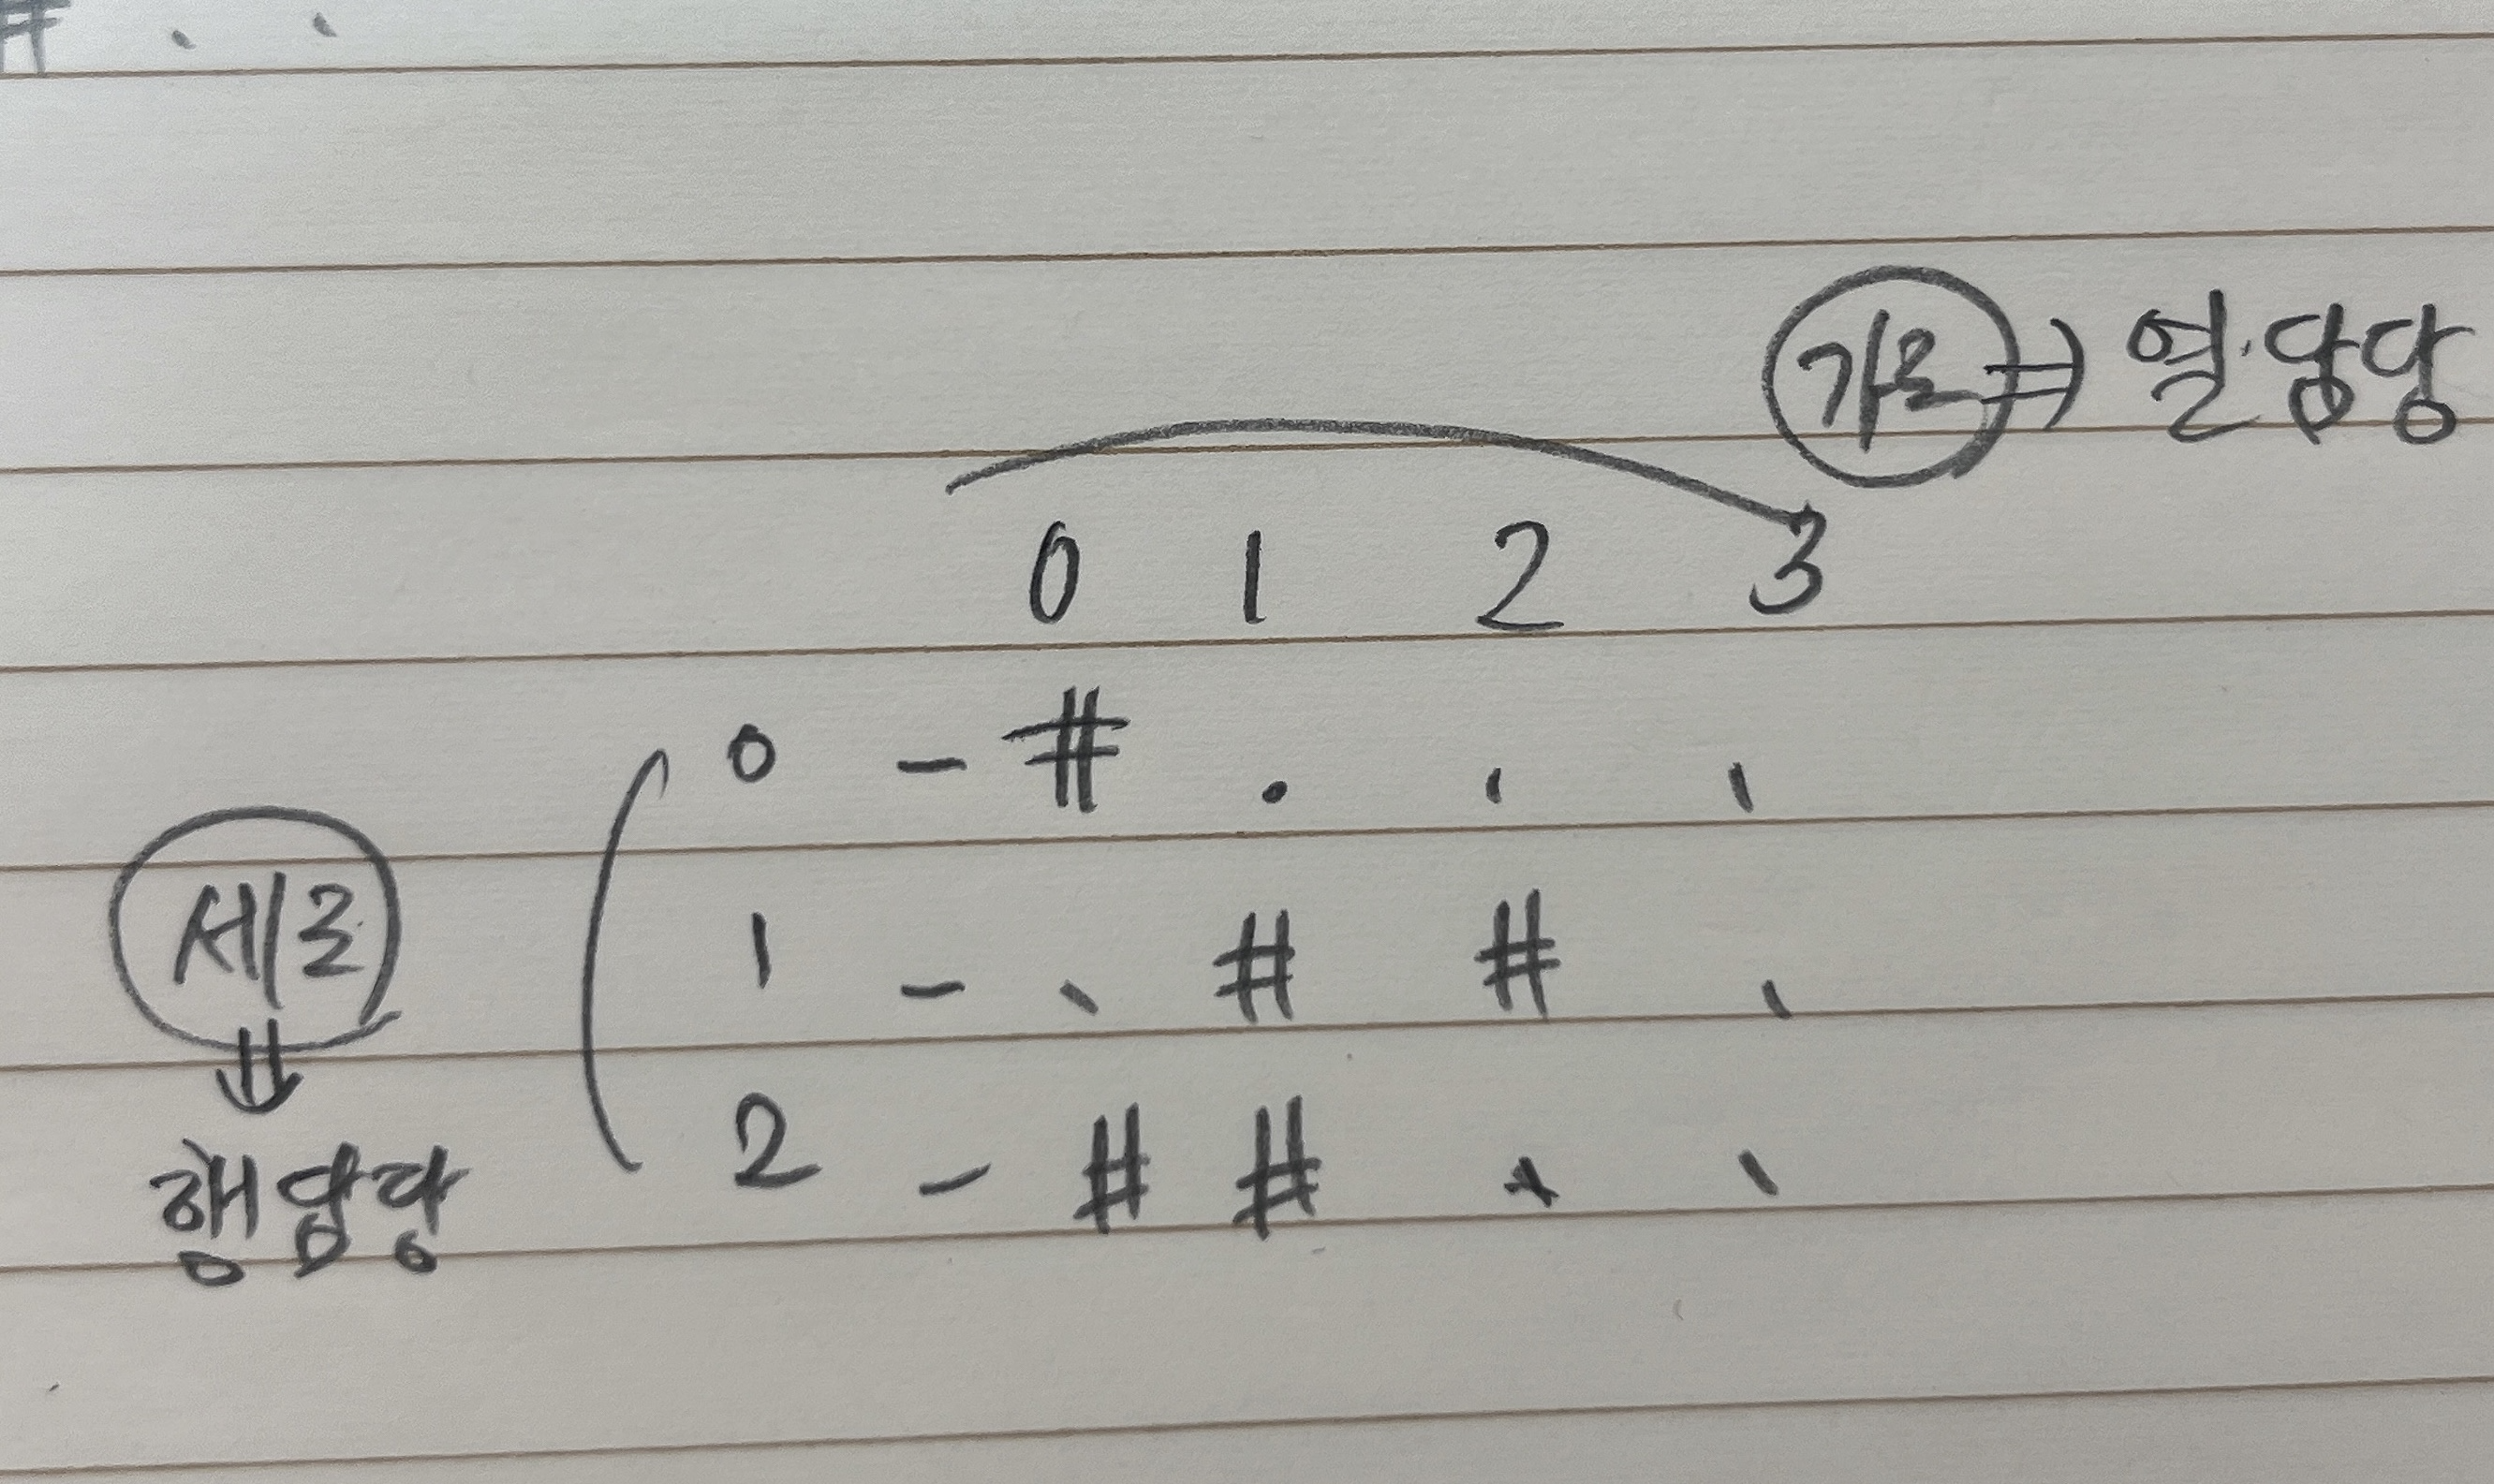 # . .
가로 => 열 담당
0 1 2 3
0 - # . . .
1 - . # # .
세로
2 - # # . .
행담당